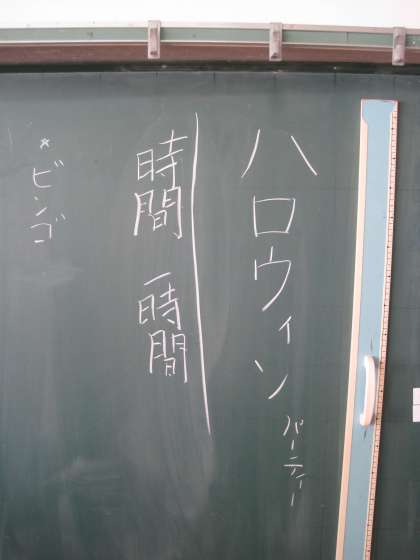 ハロウィンパーティー
時間 一時間
*ビンゴ